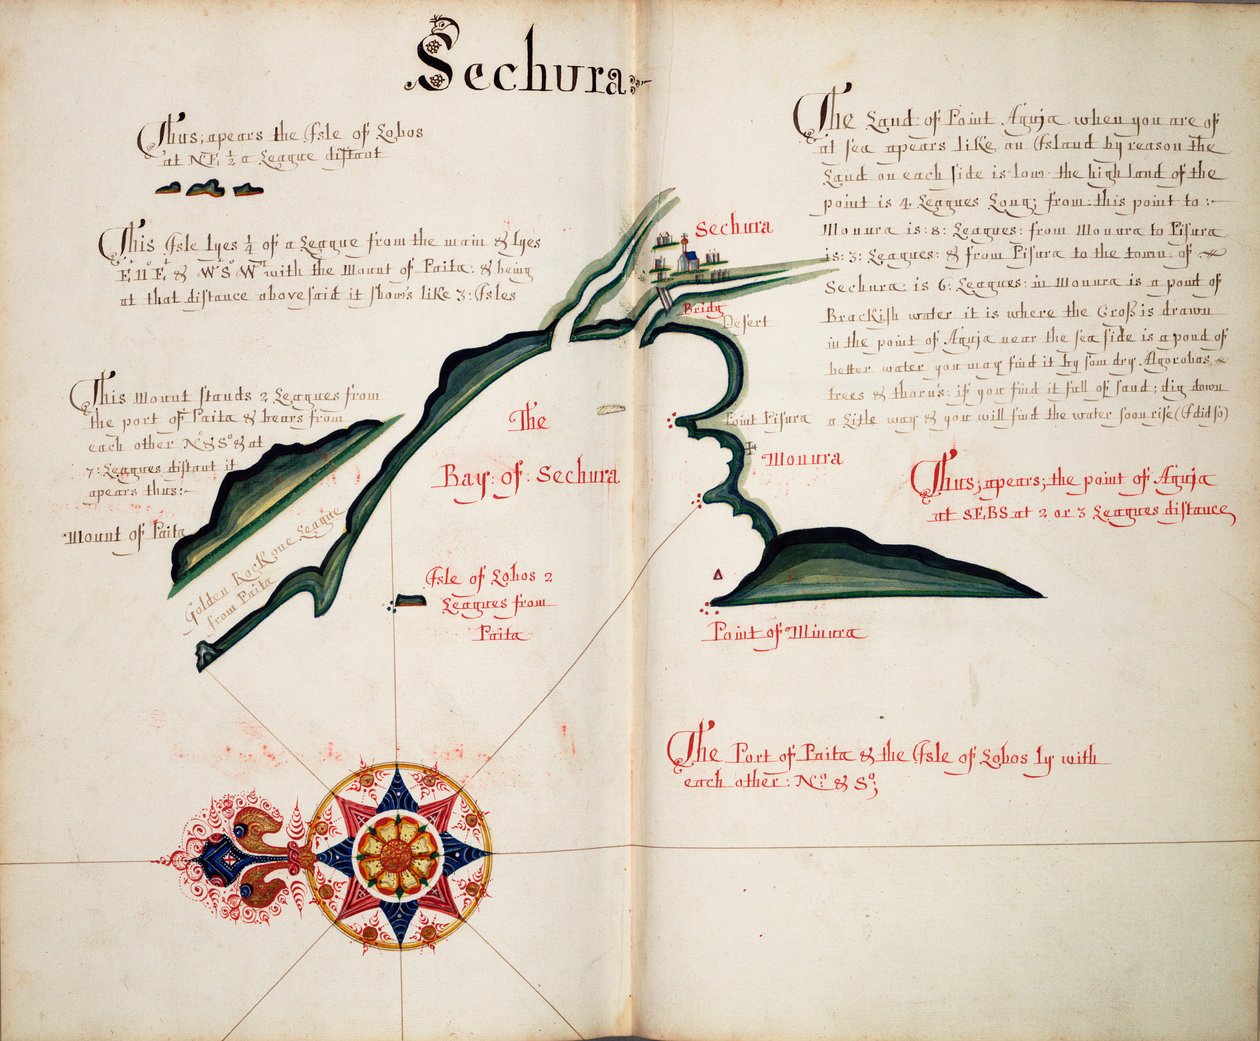 Sechura:
Thus; apears the Isle of Lobos
at N:E; ½ a League distant
This Isle lyes ¼ of a League from the main & lyes
E:n:E; & W:S:W: with the Mount of Paita. & being
at that distance abovesaid it shows like 3: Isles
This Mount stands 2 Leagues from
the port of Paita & bears from
each other N:o & S:o & at
7: Leagues distant it
apears thus:-
Mount of Paita
Golden Rock one League
from Paita
Sechura
Bridg
Desert
The
Bay: of: Sechura
Isle of Lobos 2
Leagues from
Paita
Point Pisura
Monura
Point of Minura
The Land: of Point Aguja when you are of
at sea apears like an Island by reason the
Land on each side is low the high land of the
point is 4 Leagues Long; from this point to :-
Monura is: 8: Leagues: from Monura to Pisura
is: 3: Leagues: & from Pisura to the town of
Sechura is 6: Leagues: in Monura is a pond of
Brackish water it is where the Cross is drawn
in the point of Aguja near the sea side is a pond of
better water you may find it by som dry Agorobas
trees & thorns: if you find it full of sand; dig down
a litle way & you will find the water soon rise (I did so)
Thus; apears; the point of Aguja
at SEBS at 2 or 3 Leagues distance
The Port of Paita & the Isle of Lobos ly with
each other: N:o & S:o;